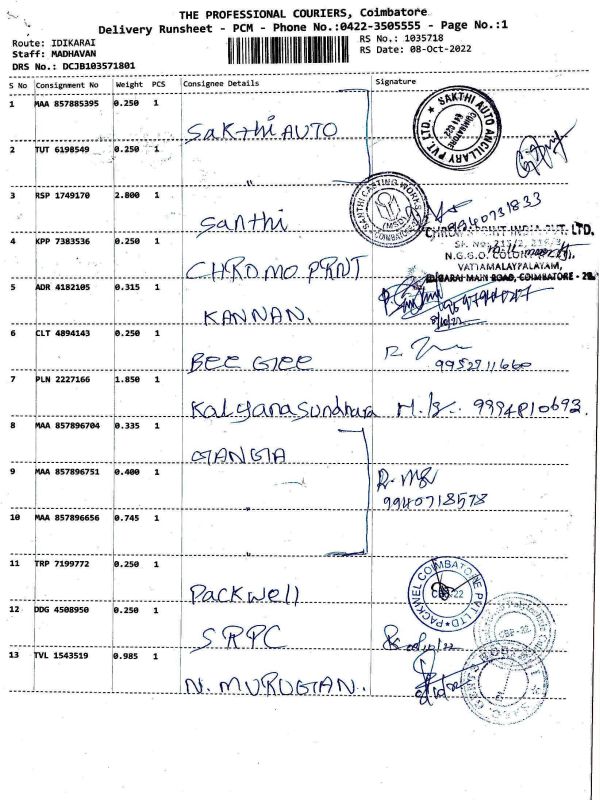 THE PROFESSIONAL COURIERS, Coimbatore
Delivery Runsheet - PCM - Phone No.:0422-3505555 - Page No.:1
Route: IDIKARAI
RS No.: 1035718
Staff: MADHAVAN
RS Date: 08-Oct-2022
DRS No.: DCJB103571801
S No Consignment No Weight PCS Consignee Details Signature
1 MAA 857885395 0.250 1
SAKTHI AUTO
SAKTHI AUTO ANCILLARY PVT. LTD.
2 TUT 6198549 0.250 1
"
3 RSP 1749170 2.800 1
Santhi
SANTHI CASTING WORKS
(MSD)
COIMBATORE
9940731833
4 KPP 7383536 0.250 1
CHROMO PRNT
N.G.G.O. COLONY
VATTAMALAYPALAYAM,
IDIGARAI MAIN ROAD, COIMBATORE - 22
5 ADR 4182105 0.315 1
KANNAN.
8/10/22
6 CLT 4894143 0.250 1
BEE GEE
9952711660
7 PLN 2227166 1.850 1
Kalyanasundhara
9994810693.
8 MAA 857896704 0.335 1
GANGA
9 MAA 857896751 0.400 1
9940718578
10 MAA 857896656 0.745 1
11 TRP 7199772 0.250 1
Packwell
PACKWEL COIMBATORE PVT LTD
12 DDG 4508950 0.250 1
SRPC
13 TVL 1543519 0.985 1
N. MURUGAN.